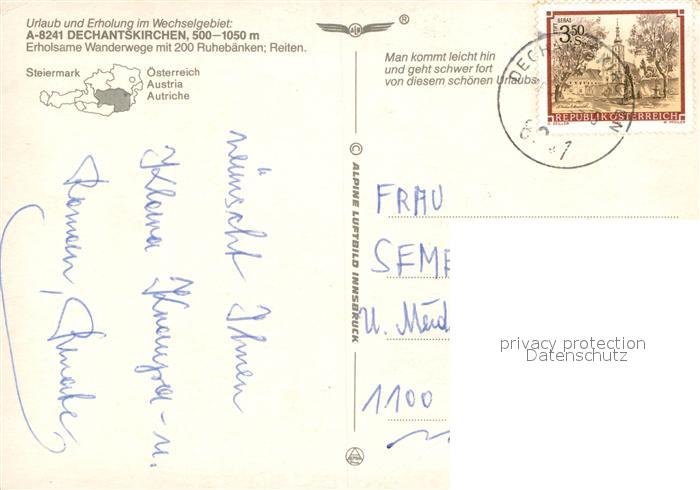 Urlaub und Erholung im Wechselgebiet:
A-8241 DECHANTSKIRCHEN, 500–1050 m
Erholsame Wanderwege mit 200 Ruhebänken; Reiten.
Steiermark
Österreich
Austria
Autriche
Man kommt leicht hin
und geht schwer fort
von diesem schönen Urlaubs
3.50
S
REPUBLIK ÖSTERREICH
© ALPINE LUFTBILD INNSBRUCK
wünscht Ihnen
u.
Renate
FRAU
SEME
1100
privacy protection
Datenschutz